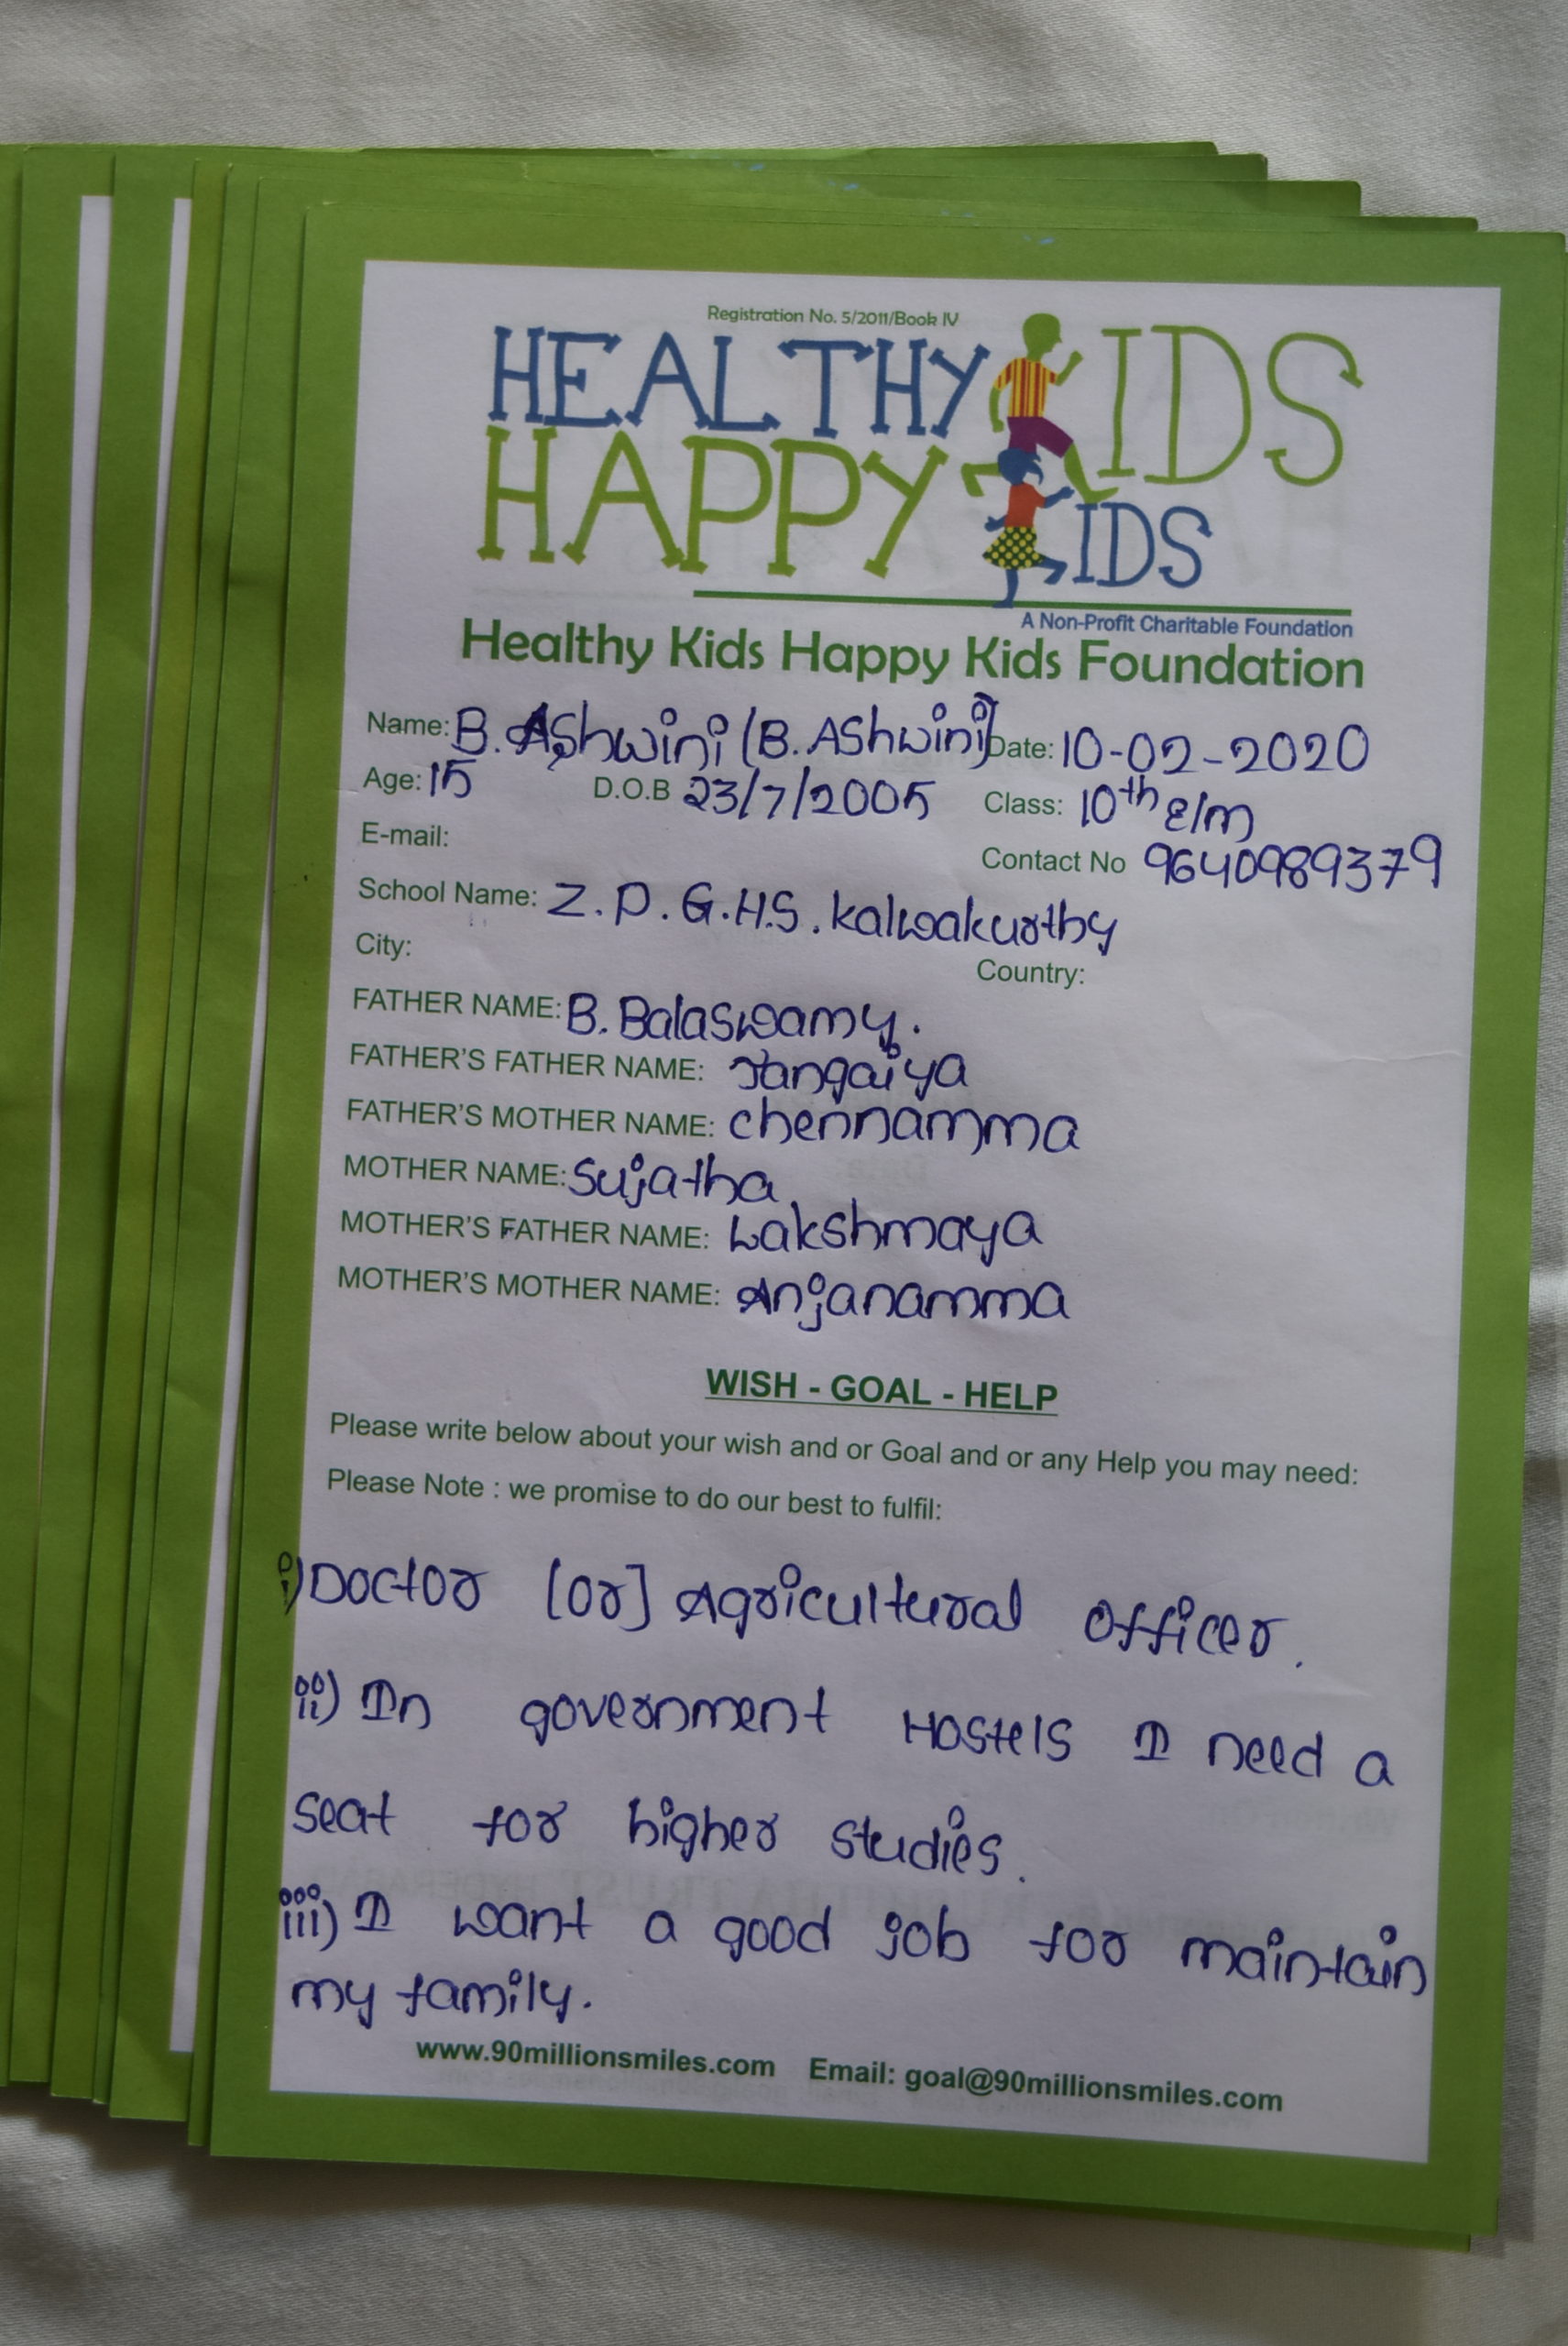 Registration No. 5/2011/Book IV
HEALTHY KIDS
HAPPY KIDS
A Non-Profit Charitable Foundation
Healthy Kids Happy Kids Foundation
Name: B. Ashwini (B. AShwini) Date: 10-02-2020
Age: 15 D.O.B 23/7/2005 Class: 10th E/m
E-mail: Contact No 9640989379
School Name: Z.P.G.H.S. kalwakurthy
City: Country:
FATHER NAME: B. Balaswamy.
FATHER'S FATHER NAME: Jangaiya
FATHER'S MOTHER NAME: chennamma
MOTHER NAME: Sujatha
MOTHER'S FATHER NAME: Lakshmaya
MOTHER'S MOTHER NAME: Anjanamma
WISH - GOAL - HELP
Please write below about your wish and or Goal and or any Help you may need:
Please Note : we promise to do our best to fulfil:
i) Doctor [or] Agricultural Officer.
ii) In government Hostels I need a
seat for higher studies.
iii) I want a good job for maintain
my family.
www.90millionsmiles.com Email: goal@90millionsmiles.com